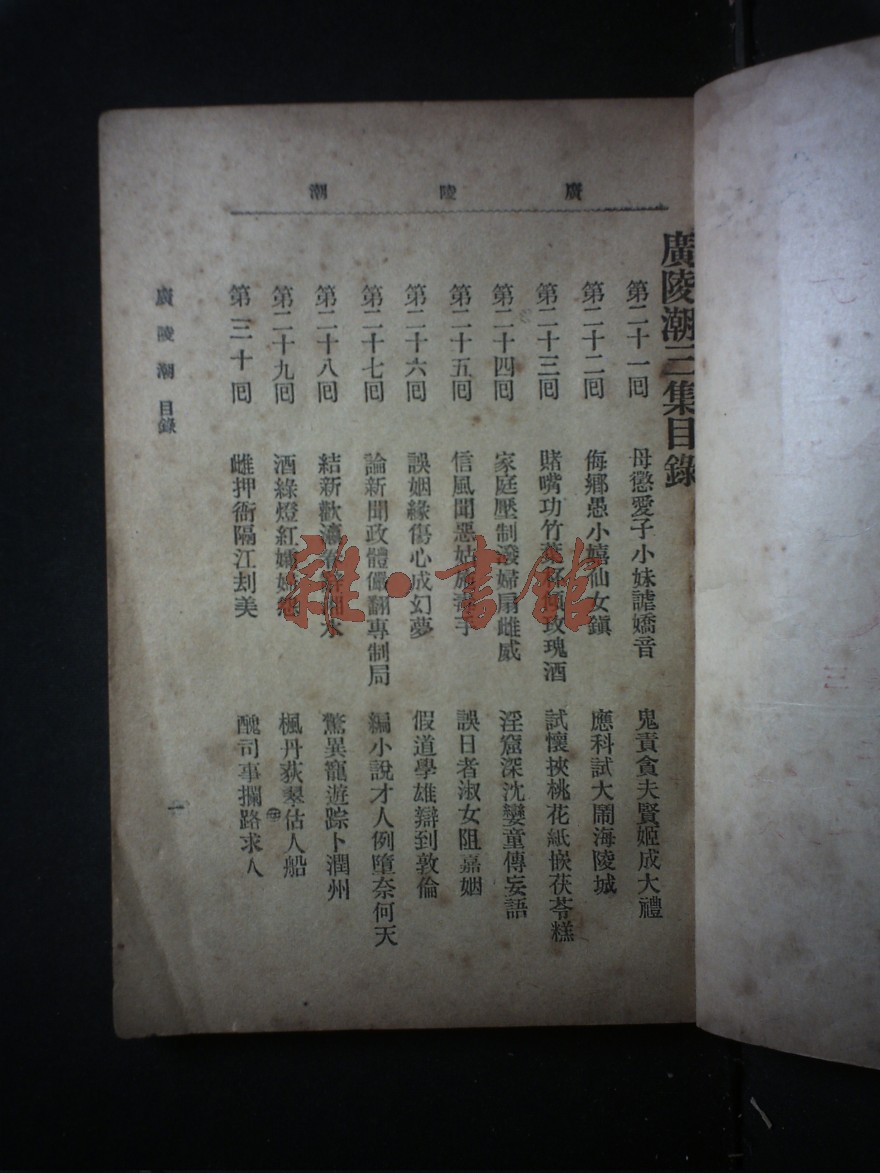 廣陵潮
廣陵潮三集目錄
第二十一囘 母懲愛子小妹謔嬌音 鬼責貪夫賢姬成大禮
第二十二囘 侮鄉愚小嬉仙女鎮 應科試大鬧海陵城
第二十三囘 賭嘴功竹葉杯傾玫瑰酒 試懷挾桃花紙嵌茯苓糕
第二十四囘 家庭壓制潑婦扇雌威 淫窟深沈孌童傳妄語
第二十五囘 信風聞惡姑施毒手 誤日者淑女阻嘉姻
第二十六囘 誤姻緣傷心成幻夢 假道學雄辯到敦倫
第二十七囘 論新聞政體儼翻專制局 編小說才人例墮奈何天
第二十八囘 結新歡瀛 水 驚異寵遊踪卜潤州
第二十九囘 酒綠燈紅孀婦 楓丹荻翠估人船
第三十囘 雌押衙隔江刦美 醜司事攔路求人
廣陵潮 目錄
一
雜·書館
三